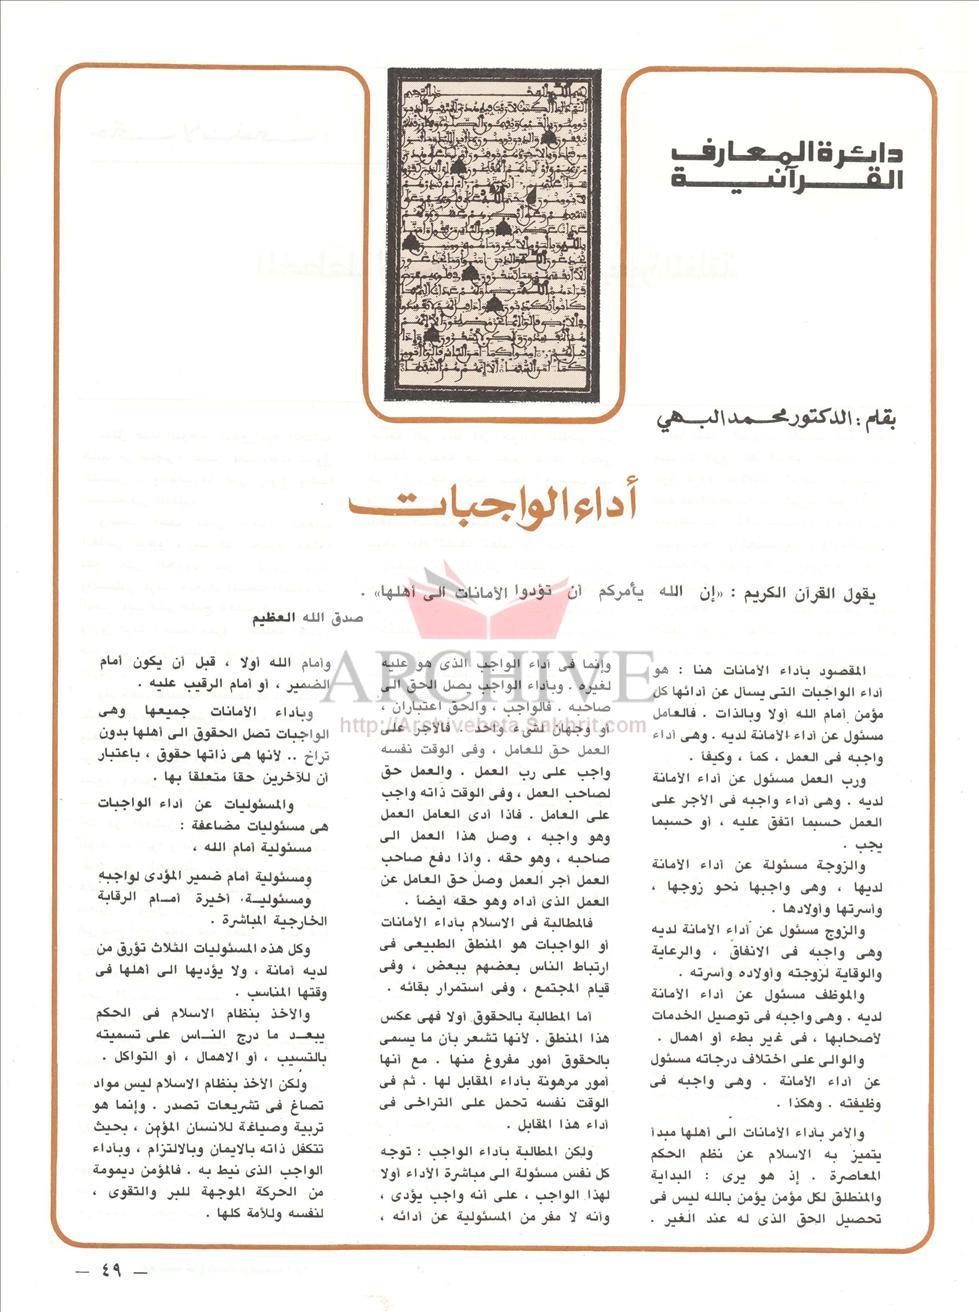 دائرة المعارف
القرآنية
بقلم : الدكتور محمد البهي
أداء الواجبات
يقول القرآن الكريم : «إن الله يأمركم أن تؤدوا الأمانات الى أهلها» .
صدق الله العظيم
المقصود بأداء الأمانات هنا : هو
أداء الواجبات التى يسأل عن أدائها كل
مؤمن أمام الله أولا وبالذات . فالعامل
مسئول عن أداء الأمانة لديه . وهى أداء
واجبه فى العمل ، كما ، وكيفا .
ورب العمل مسئول عن أداء الأمانة
لديه . وهى أداء واجبه فى الأجر على
العمل حسبما اتفق عليه ، أو حسبما
يجب .
والزوجة مسئولة عن أداء الأمانة
لديها ، وهى واجبها نحو زوجها ،
وأسرتها وأولادها .
والزوج مسئول عن أداء الأمانة لديه
وهى واجبه فى الانفاق ، والرعاية
والوقاية لزوجته وأولاده وأسرته .
والموظف مسئول عن أداء الأمانة
لديه . وهى واجبه فى توصيل الخدمات
لأصحابها ، فى غير بطء أو اهمال .
والوالى على اختلاف درجاته مسئول
عن أداء الأمانة . وهى واجبه فى
وظيفته . وهكذا .
والأمر بأداء الأمانات الى أهلها مبدأ
يتميز به الاسلام عن نظم الحكم
المعاصرة . إذ هو يرى : البداية
والمنطلق لكل مؤمن يؤمن بالله ليس فى
تحصيل الحق الذى له عند الغير .
وإنما فى أداء الواجب الذى هو عليه
لغيره . وبأداء الواجب يصل الحق الى
صاحبه . فالواجب . والحق اعتباران ،
أو وجهان لشىء واحد . فالأجر على
العمل حق للعامل ، وفى الوقت نفسه
واجب على رب العمل . والعمل حق
لصاحب العمل ، وفى الوقت ذاته واجب
على العامل . فاذا أدى العامل العمل
وهو واجبه ، وصل هذا العمل الى
صاحبه ، وهو حقه . واذا دفع صاحب
العمل أجر العمل وصل حق العامل عن
العمل الذى أداه وهو حقه أيضا .
فالمطالبة فى الاسلام بأداء الأمانات
أو الواجبات هو المنطق الطبيعى فى
ارتباط الناس بعضهم ببعض ، وفى
قيام المجتمع ، وفى استمرار بقائه .
أما المطالبة بالحقوق أولا فهى عكس
هذا المنطق . لأنها تشعر بأن ما يسمى
بالحقوق أمور مفروغ منها . مع أنها
أمور مرهونة بأداء المقابل لها . ثم فى
الوقت نفسه تحمل على التراخى فى
أداء هذا المقابل .
ولكن المطالبة بأداء الواجب : توجه
كل نفس مسئولة الى مباشرة الأداء أولا
لهذا الواجب ، على أنه واجب يؤدى ،
وأنه لا مفر من المسئولية عن أدائه ،
وأمام الله أولا ، قبل أن يكون أمام
الضمير ، أو أمام الرقيب عليه .
وبأداء الأمانات جميعها وهى
الواجبات تصل الحقوق الى أهلها بدون
تراخ .. لأنها هى ذاتها حقوق ، باعتبار
أن للآخرين حقا متعلقا بها .
والمسئوليات عن أداء الواجبات
هى مسئوليات مضاعفة :
مسئولية أمام الله ،
ومسئولية أمام ضمير المؤدى لواجبه
ومسئولية، أخيرة أمام الرقابة
الخارجية المباشرة .
وكل هذه المسئوليات الثلاث تؤرق من
لديه أمانة ، ولا يؤديها الى أهلها فى
وقتها المناسب .
والأخذ بنظام الاسلام فى الحكم
يبعد ما درج الناس على تسميته
بالتسيب ، أو الاهمال ، أو التواكل .
ولكن الأخذ بنظام الاسلام ليس مواد
تصاغ فى تشريعات تصدر . وإنما هو
تربية وصياغة للانسان المؤمن ، بحيث
تتكفل ذاته بالايمان وبالالتزام ، وبأداء
الواجب الذى نيط به . فالمؤمن ديمومة
من الحركة الموجهة للبر والتقوى ،
لنفسه وللأمة كلها .
ARCHIVE
http://Archivebeta.Sakhrit.com
— ٤٩ —